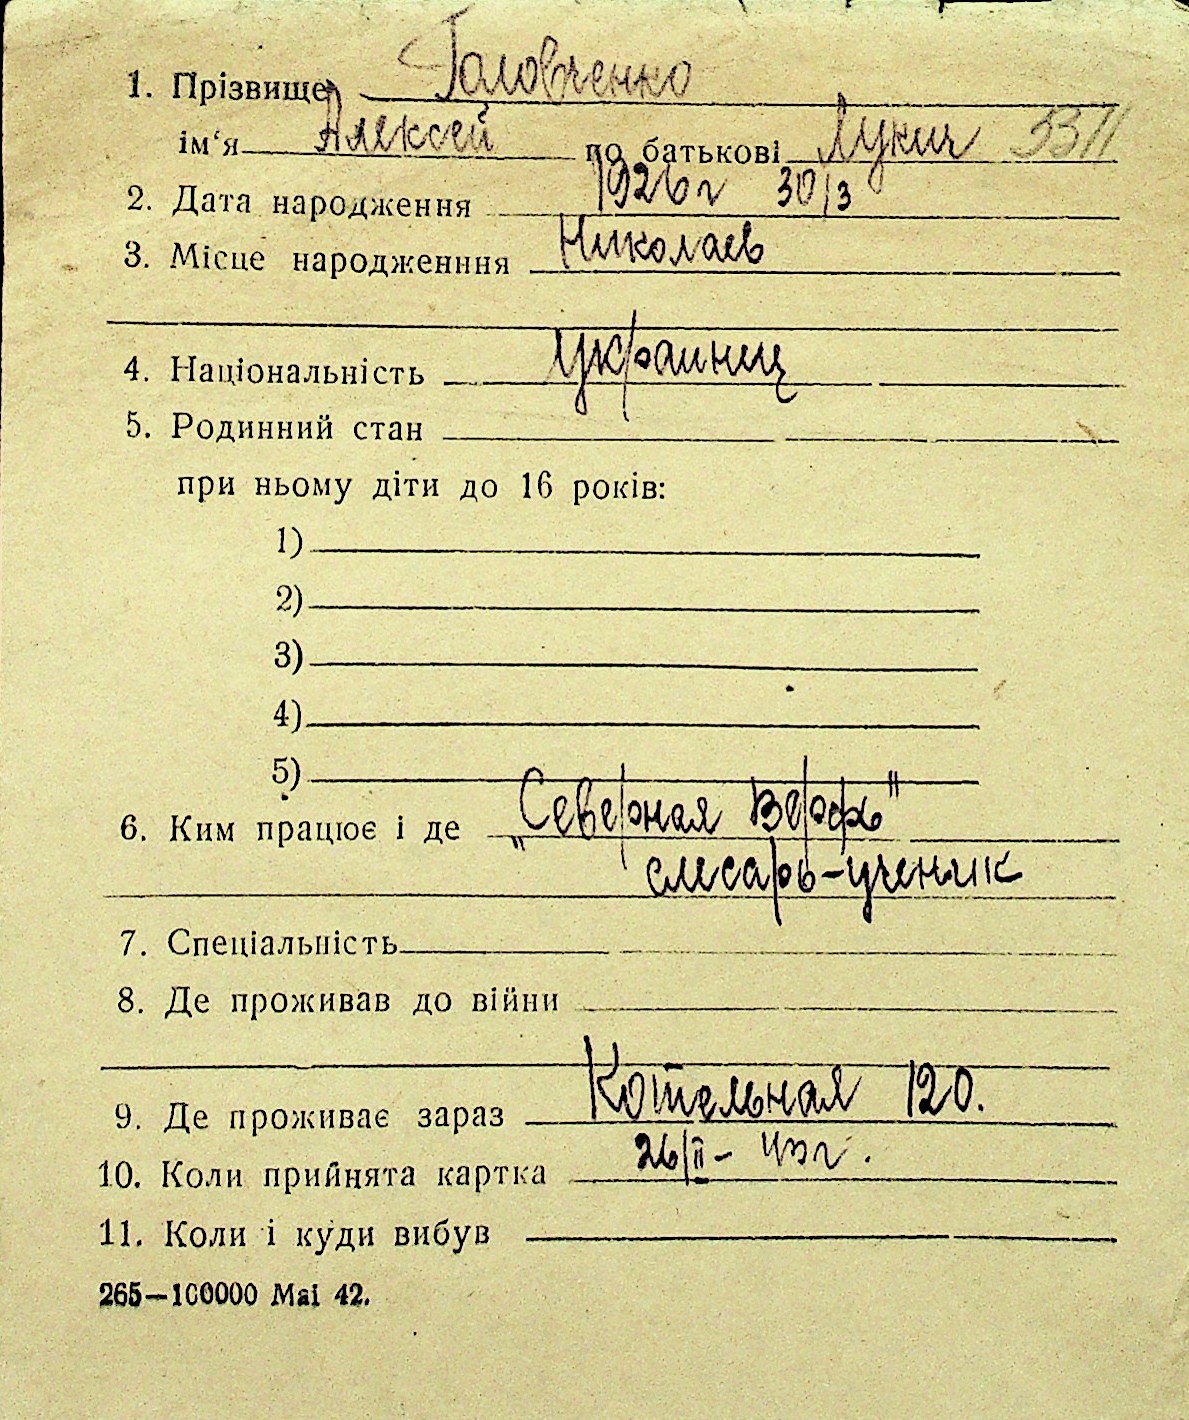 1. Прізвище Головченко
ім'я Алексей по батькові Лукич 3311
2. Дата народження 1926 г 30/3
3. Місце народженння Николаев
4. Національність украинец
5. Родинний стан
при ньому діти до 16 років:
1)
2)
3)
4)
5)
6. Ким працює і де „Северная Верфь"
слесарь-ученик
7. Спеціальність
8. Де проживав до війни
9. Де проживає зараз Котельная 120.
10. Коли прийнята картка 26/II - 43 г.
11. Коли і куди вибув
265—100000 Mai 42.